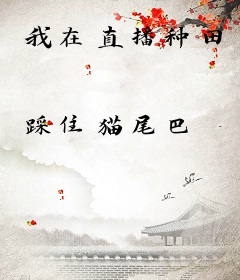 我在直播种田
踩住猫尾巴